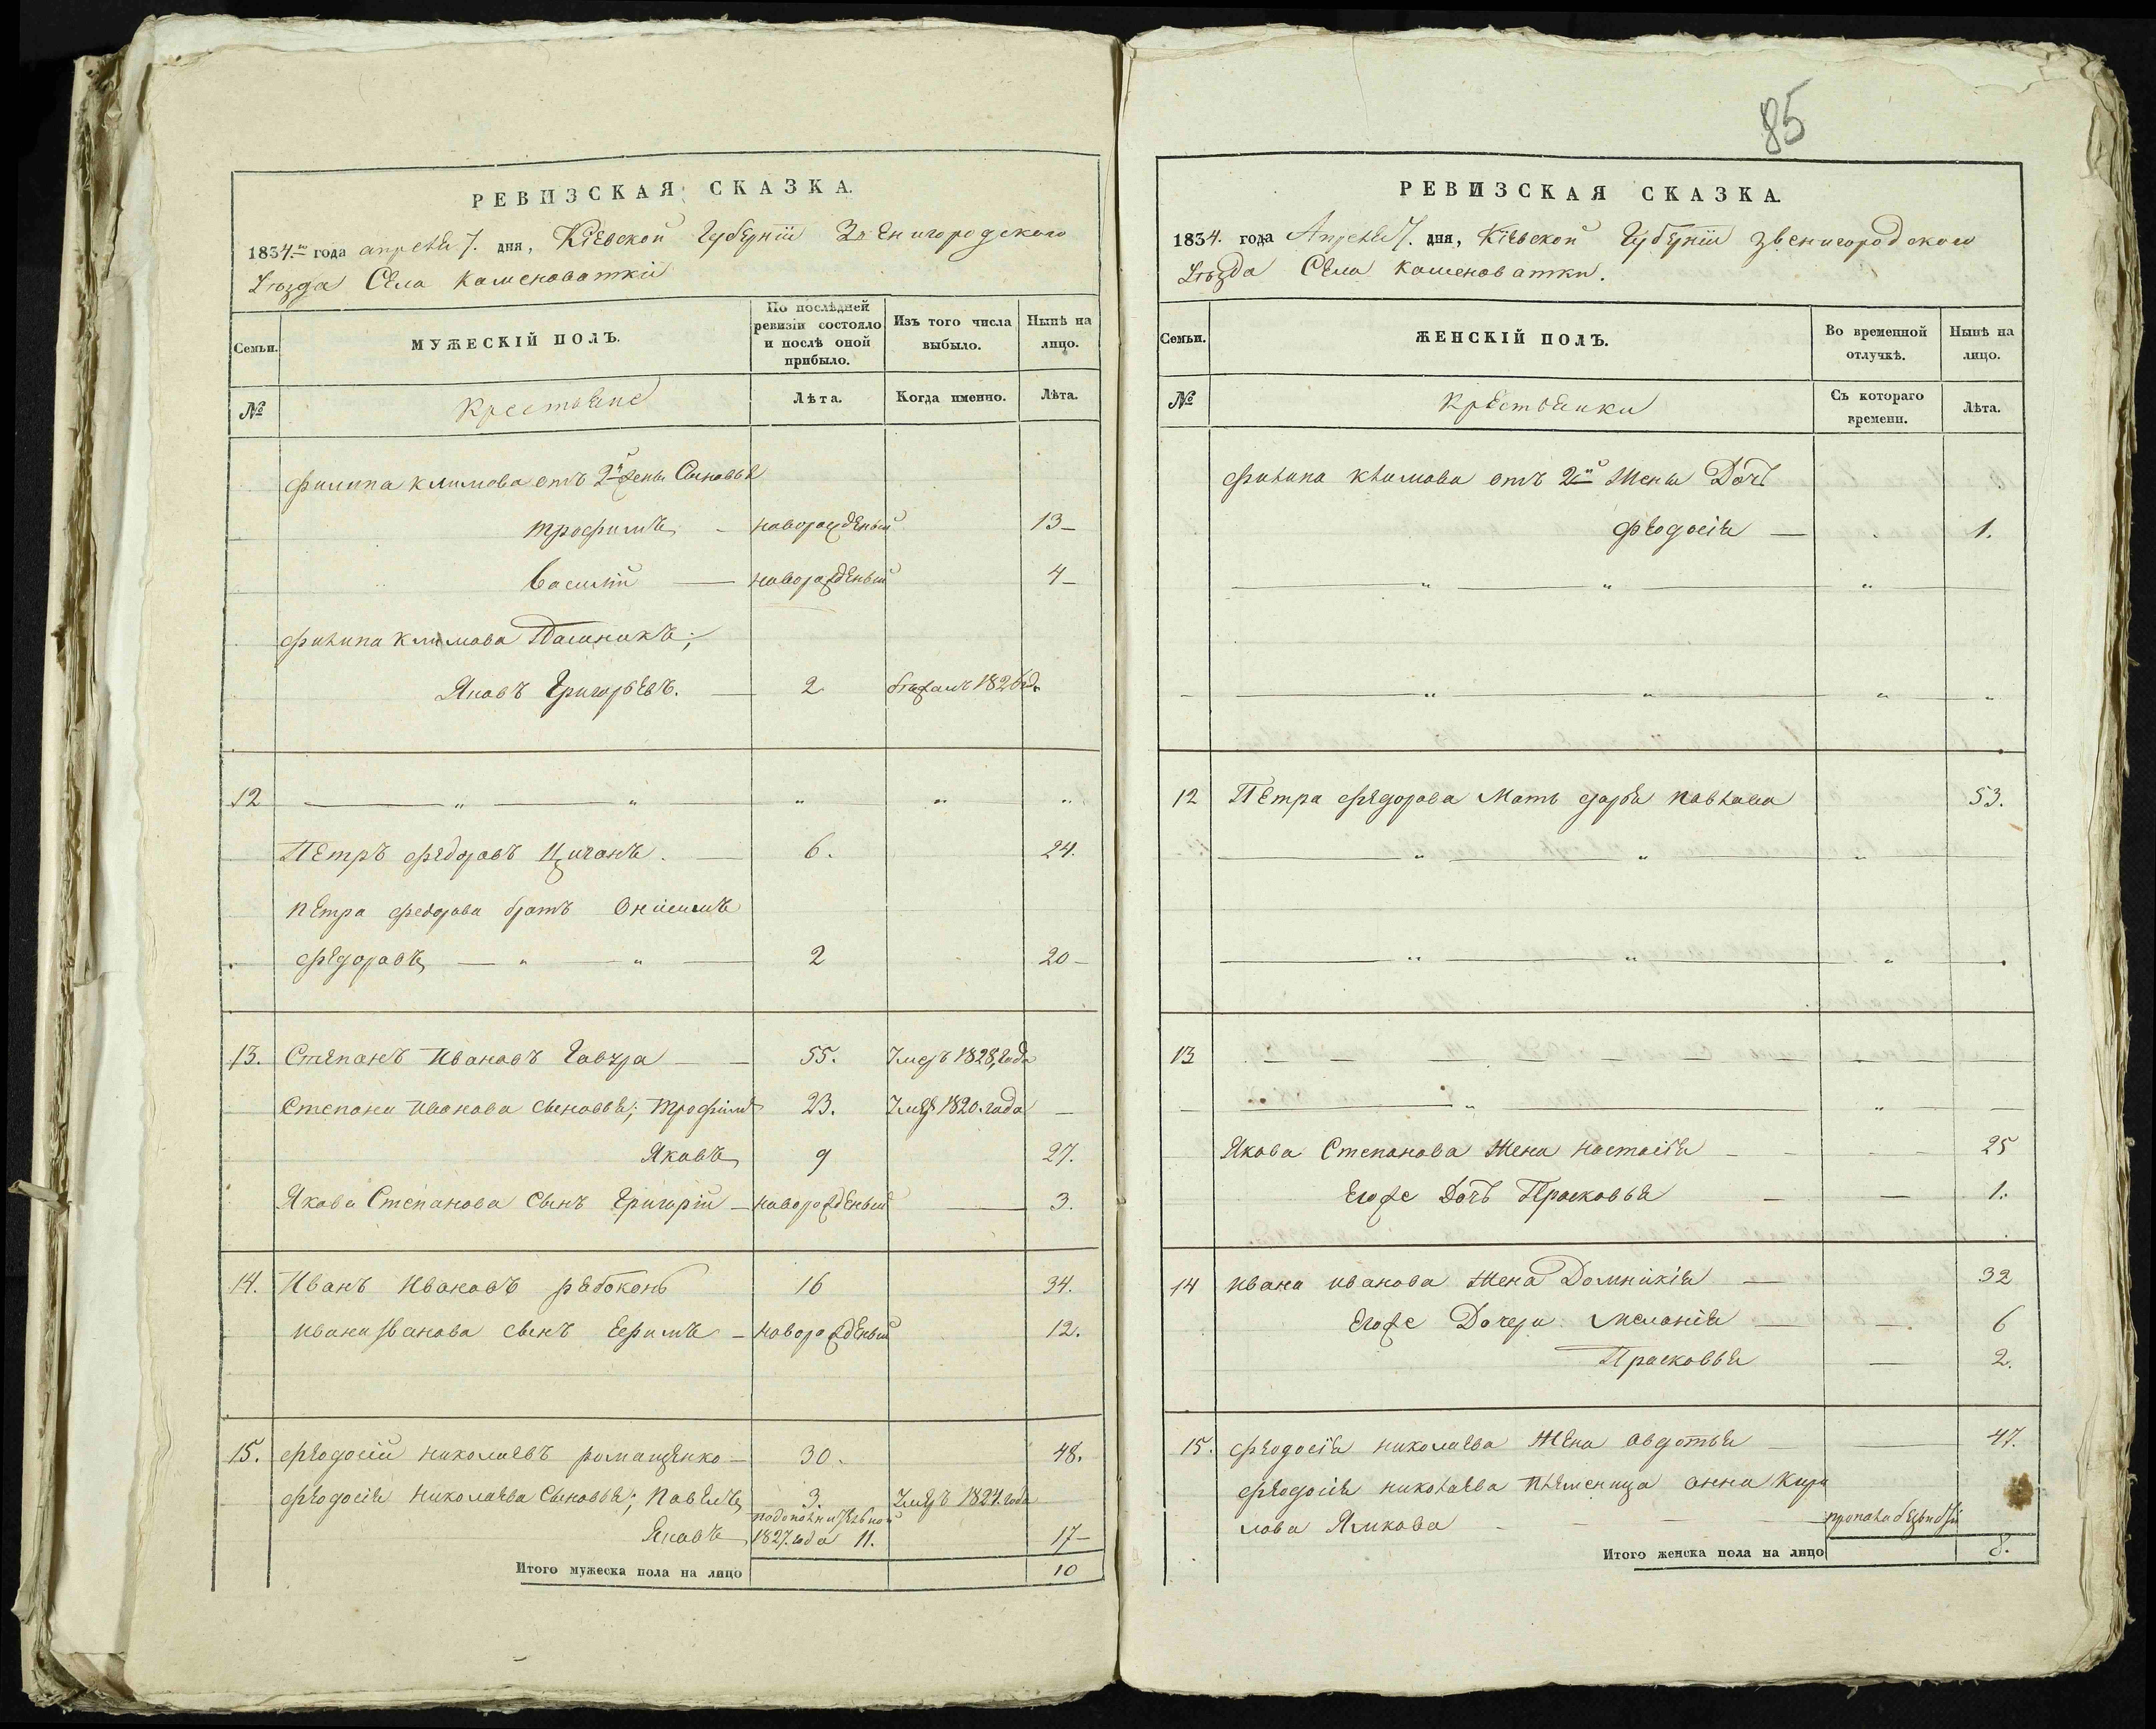 РЕВИЗСКАЯ СКАЗКА.
1834.го года апреля 7. дня, Кіевской Губерніи Звенигородского
Уѣзда Села Каменоватки
Семьи. МУЖЕСКІЙ ПОЛЪ. По послѣдней ревизіи состояло и послѣ оной прибыло. Изъ того числа выбыло. Нынѣ на лицо.
№ Крестьяне Лѣта. Когда именно. Лѣта.
Филипа Климова отъ 2й жены Сыновья
Трофимъ - новорожденый 13 -
Василій — новорожденый 4 -
Филипа Климова Пасинокъ;
Яковъ Григорьевъ. — 2 бѣжалъ 1826 го
12 — „ — „ „ „ „
Петръ Федоровъ Циганъ. — 6. 24.
Петра Федорова братъ Онисимъ
Федоровъ — „ — „ — 2 20 -
13. Степанъ Ивановъ Гавура — — 55. Умеръ 1828, года
Степана Иванова сыновья; Трофимъ 23. Умеръ 1820. года —
Яковъ 9 27.
Якова Степанова Сынъ Григорій - новорожденый — 3.
14. Иванъ Ивановъ рябоконь 16 34.
Ивана Иванова сынъ Ефимъ - новорожденый 12.
15. Феодосій Николаевъ романценко - 30. 48.
Феодосія Николаева Сыновья; Павелъ 3. Умеръ 1824. года
Яковъ подополнительной 1827. года 11. 17 -
Итого мужеска пола на лицо 10
85
РЕВИЗСКАЯ СКАЗКА.
1834. года Апреля 7. дня, Кіевской Губерніи Звенигородского
Уѣзда Села Каменоватки.
Семьи. ЖЕНСКІЙ ПОЛЪ. Во временной отлучкѣ. Нынѣ на лицо.
№ Крестьянки Съ котораго времени. Лѣта.
Филипа Климова отъ 2й Жены Дочь
Феодосія — 1.
— „ — „ — „ —
— „ — „ — „ „
12 Петра Федорова Мать Дарья Павлова 53.
— „ — „ — „ —
— „ — „ — „ —
13 — — — — — —
— „ — „ —
Якова Степанова Жена Настасія - - — 25
Егоже Дочь Прасковья — — 1.
14 Ивана Иванова Жена Домникія — 32
Егоже Дочери Меланія — — 6
Прасковья — 2.
15. Феодосія Николаева Жена Авдотья — 47.
Феодосія Николаева Племеница Анна Кири
лова - - — пропала
Итого женска пола на лицо 8.